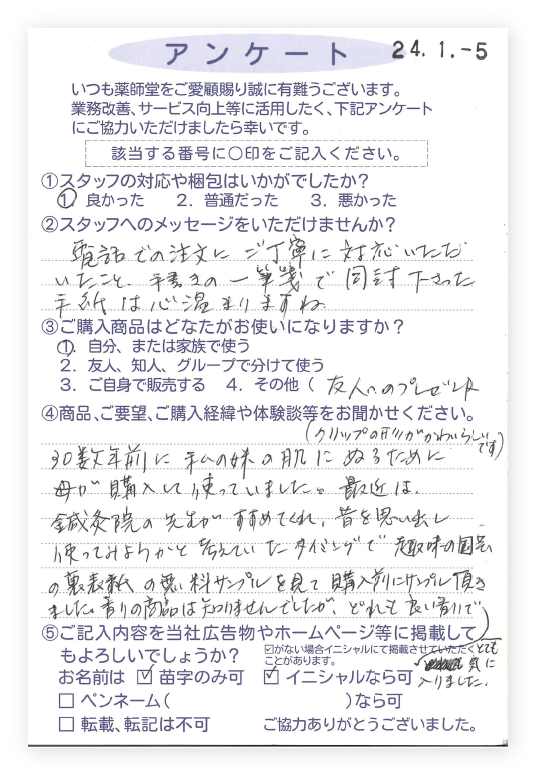 アンケート
24.1.-5
いつも薬師堂をご愛顧賜り誠に有難うございます。
業務改善、サービス向上等に活用したく、下記アンケート
にご協力いただけましたら幸いです。
該当する番号に〇印をご記入ください。
①スタッフの対応や梱包はいかがでしたか?
1. 良かった 2. 普通だった 3. 悪かった
②スタッフへのメッセージをいただけませんか?
電話での注文にご丁寧に対応いただ
いたこと、手書きの一筆箋で同封下さった
手紙は心温まりますね
③ご購入商品はどなたがお使いになりますか?
1. 自分、または家族で使う
2. 友人、知人、グループで分けて使う
3. ご自身で販売する 4. その他( 友人へのプレゼント
④商品、ご要望、ご購入経緯や体験談等をお聞かせください。
(クリップの形がかわいらしいです)
30数年前に私の妹の肌にぬるために
母が購入して使っていました。最近は、
鍼灸院の先生がすすめてくれ、昔を思い出し
使ってみようかと考えていたタイミングで趣味の園芸
の裏表紙の無料サンプルを見て購入前にサンプル頂き
ました。香りの商品は知りませんでしたが、どれも良い香りで
とても
気に
入りました。
⑤ご記入内容を当社広告物やホームページ等に掲載して
もよろしいでしょうか?
☑がない場合イニシャルにて掲載させていただく
ことがあります。
お名前は ☑ 苗字のみ可 ☑ イニシャルなら可
□ ペンネーム( )なら可
□ 転載、転記は不可 ご協力ありがとうございました。